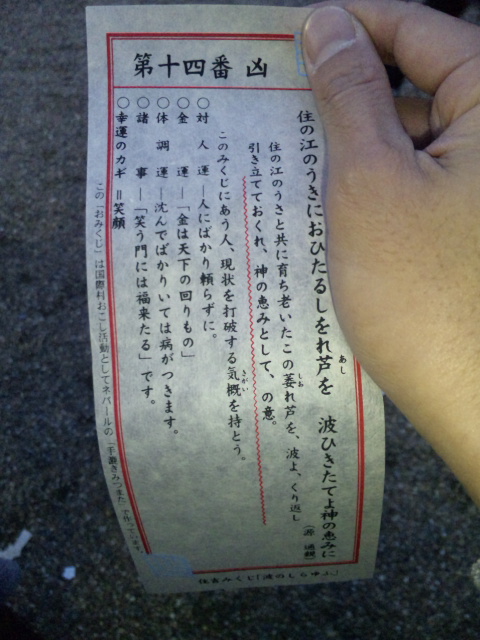 第十四番 凶
住の江のうきにおひたるしをれ芦を 波ひきたてよ神の恵みに
あし
(源 道頼)
住の江のうきと共に育ち老いたこの萎れ芦を、波よ、くり返し
しお
引き立てておくれ、神の恵みとして、の意。
このみくじにあう人、現状を打破する気概を持とう。
きがい
○対人運―人にばかり頼らずに。
○金運―「金は天下の回りもの」
○体調運―沈んでばかりいては病がつきます。
○諸事―「笑う門には福来たる」です。
○幸運のカギ=笑顔
この「おみくじ」は国際村おこし活動としてネパールの「手漉きみつまた」で作っています。
住吉みくじ「波のしらゆふ」